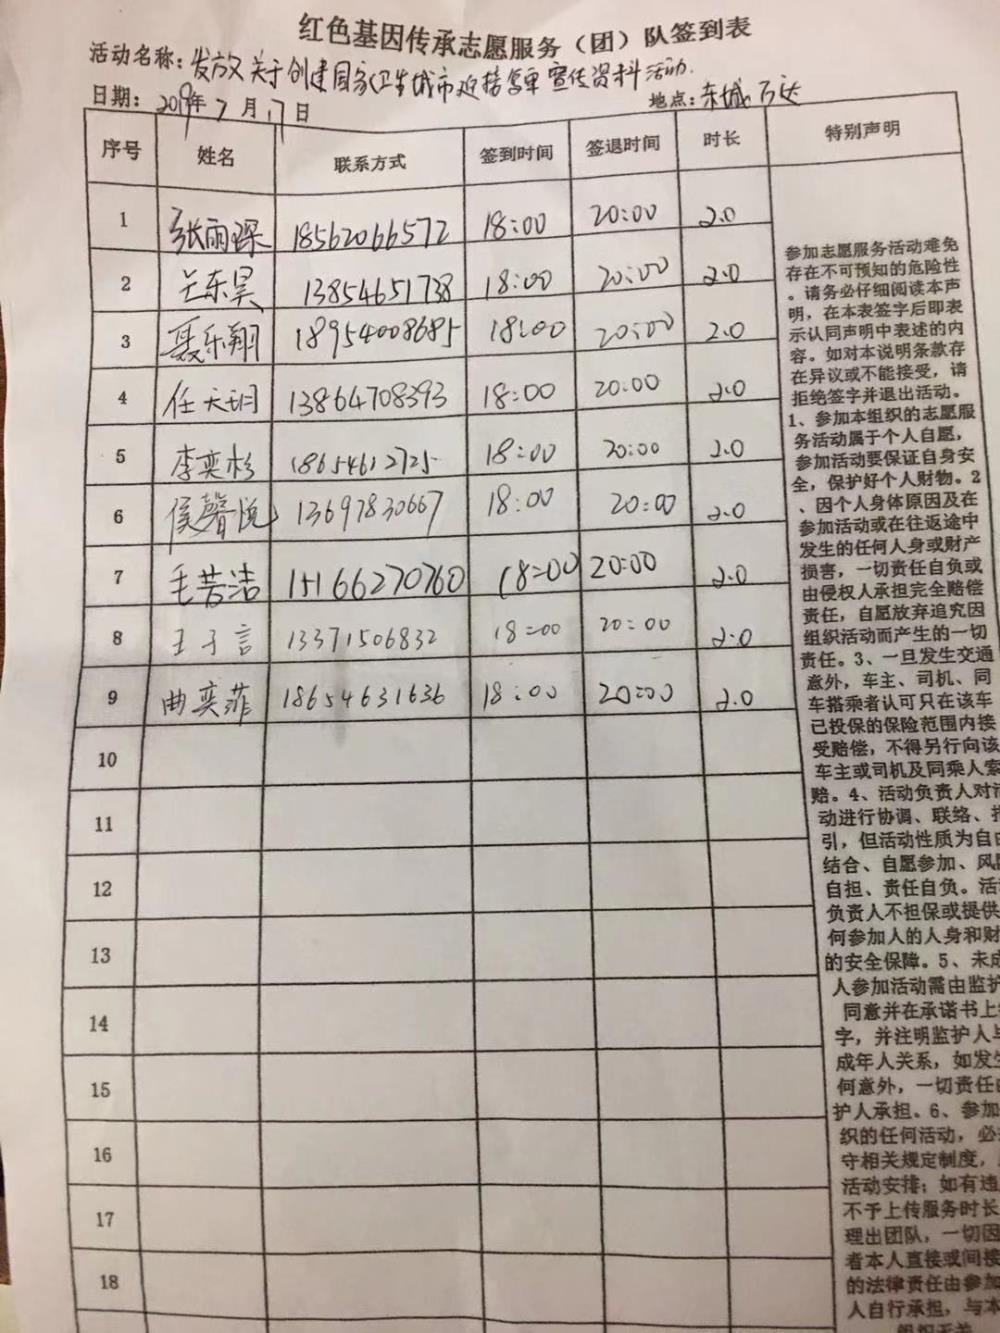 红色基因传承志愿服务（团）队签到表
活动名称：发放关于创建国家卫生城市迎接复审宣传资料活动.
日期： 2019年7月17日 地点：东城万达
序号 姓名 联系方式 签到时间 签退时间 时长 特别声明
1 张雨琛 18562066572 18:00 20:00 2.0
2 兰东昊 13854651738 18:00 20:00 2.0
3 聂乐翔 18954008685 18:00 20:00 2.0
4 任天玥 13864708393 18:00 20:00 2.0
5 李奕杉 18654612725 18:00 20:00 2.0
6 侯馨悦 13697830667 18:00 20:00 2.0
7 毛若洁 15166270760 18:00 20:00 2.0
8 王子言 13371506832 18:00 20:00 2.0
9 曲奕菲 18654631636 18:00 20:00 2.0
10
11
12
13
14
15
16
17
18
参加志愿服务活动难免
存在不可预知的危险性
。请务必仔细阅读本声
明，在本表签字后即表
示认同声明中表述的内
容。如对本说明条款存
在异议或不能接受，请
拒绝签字并退出活动。
1、参加本组织的志愿服
务活动属于个人自愿，
参加活动要保证自身安
全，保护好个人财物。2
、因个人身体原因及在
参加活动或在往返途中
发生的任何人身或财产
损害，一切责任自负或
由侵权人承担完全赔偿
责任，自愿放弃追究因
组织活动而产生的一切
责任。3、一旦发生交通
意外，车主、司机、同
车搭乘者认可只在该车
已投保的保险范围内接
受赔偿，不得另行向该
车主或司机及同乘人索
赔。4、活动负责人对活
动进行协调、联络、指
引，但活动性质为自由
结合、自愿参加、风险
自担、责任自负。活
负责人不担保或提供
何参加人的人身和财
的安全保障。5、未成
人参加活动需由监护
同意并在承诺书上
字，并注明监护人与
成年人关系，如发生
何意外，一切责任由
护人承担。6、参加
织的任何活动，必
守相关规定制度，
活动安排；如有违
不予上传服务时长
理出团队，一切因
者本人直接或间接
的法律责任由参加
人自行承担，与本
组织无关